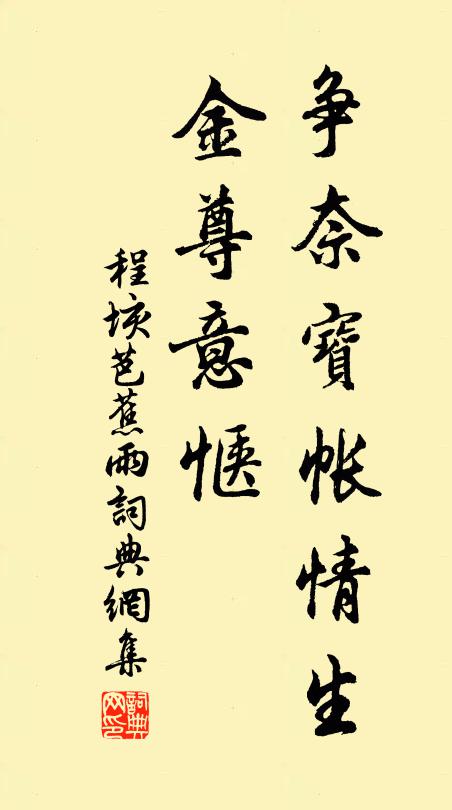 争奈寶帳情生
金尊意愜
程垓芭蕉雨詞典網集
詞典网印